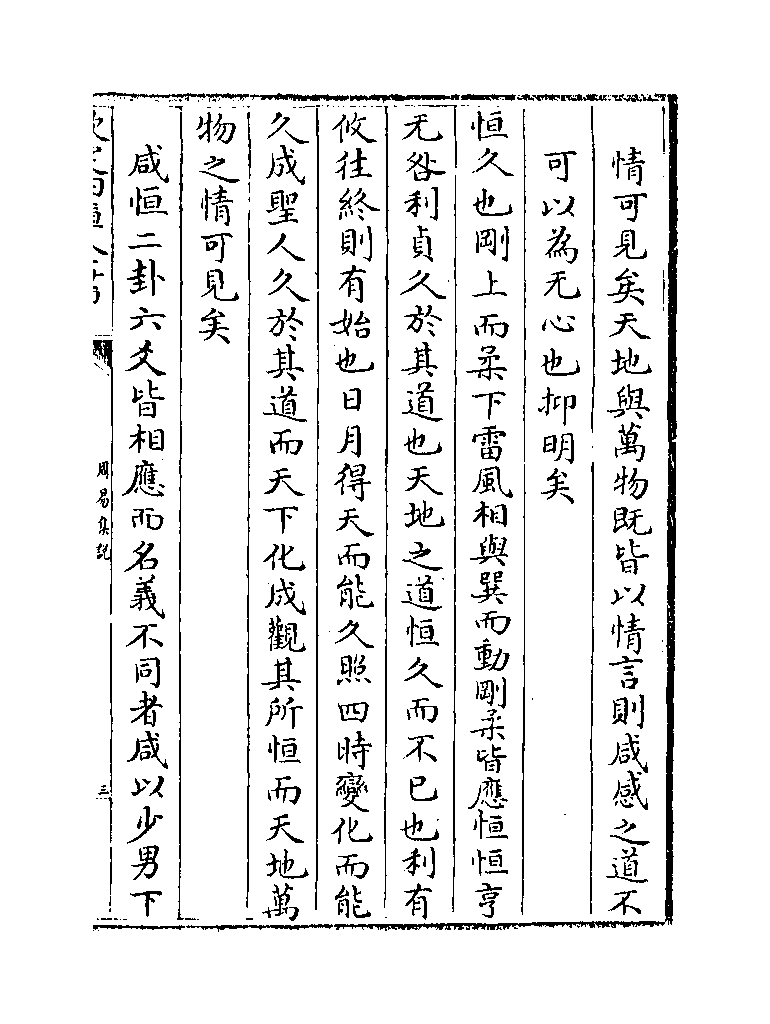 情可見矣天地與萬物既皆以情言則咸感之道不
可以為无心也抑明矣
恒久也剛上而柔下雷風相與巽而動剛柔皆應恒恒亨
无咎利貞久於其道也天地之道恒久而不已也利有
攸往終則有始也日月得天而能久照四時變化而能
久成聖人久於其道而天下化成觀其所恒而天地萬
物之情可見矣
咸恒二卦六爻皆相應而名義不同者咸以少男下
周易集說
三